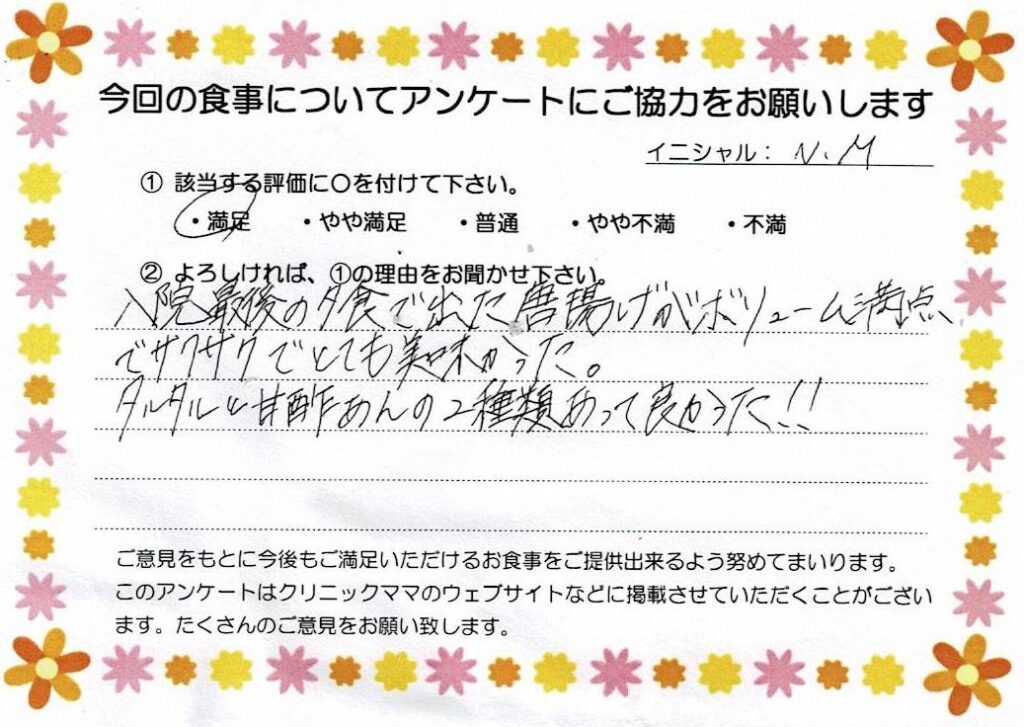 今回の食事についてアンケートにご協力をお願いします
イニシャル： N.M
① 該当する評価に〇を付けて下さい。
・満足 ・やや満足 ・普通 ・やや不満 ・不満
② よろしければ、①の理由をお聞かせ下さい。
入院最後の夕食で出た唐揚げがボリューム満点
でサクサクでとても美味かった。
タルタルと甘酢あんの2種類あって良かった!!
ご意見をもとに今後もご満足いただけるお食事をご提供出来るよう努めてまいります。
このアンケートはクリニックママのウェブサイトなどに掲載させていただくことがござい
ます。たくさんのご意見をお願い致します。